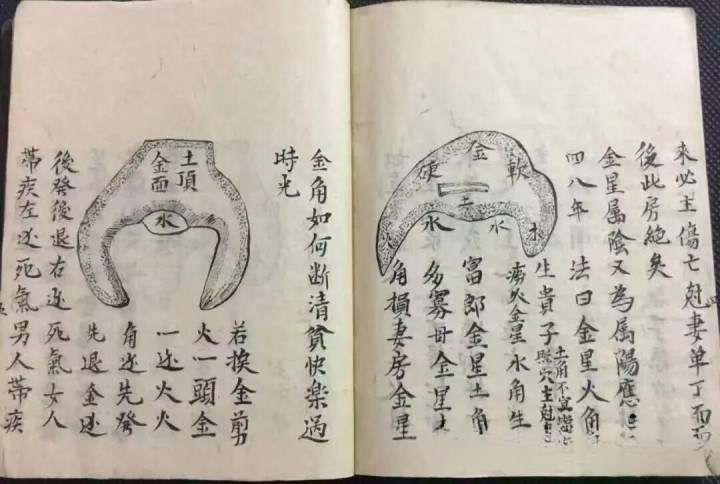 来必主傷亡尅妻单丁而
後此房絶矣
金星属陰又為属陽應
四八年 法曰金星火角
生貴子
土角不宜當
穴主尅
火金星水角生
富郎金星土角
多寡母金星土
角損妻房金星
金
軟
硬
土
水
水
木
金角如何断清貧快樂過
時光
土頂
金面
水
若挨金剪
火一頭金
一边火火
角边先發
先退金边
後發後退右边死氣女人
帶疾左边死氣男人帶疾